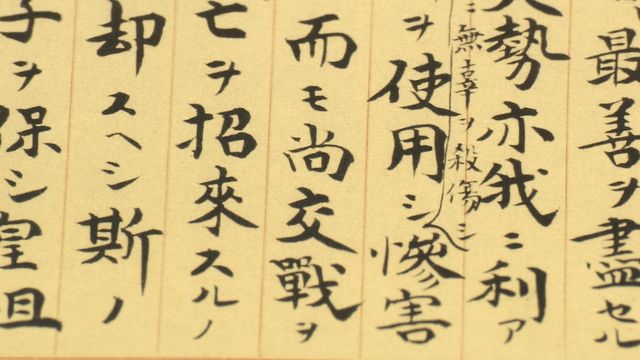 最善ヲ盡セル
大勢亦我ニ利ア
ニ無辜ヲ殺傷シ
ヲ使用シ慘害
而モ尚交戰ヲ
亡ヲ招來スルノ
却スヘシ斯ノ
子ヲ保シ皇祖